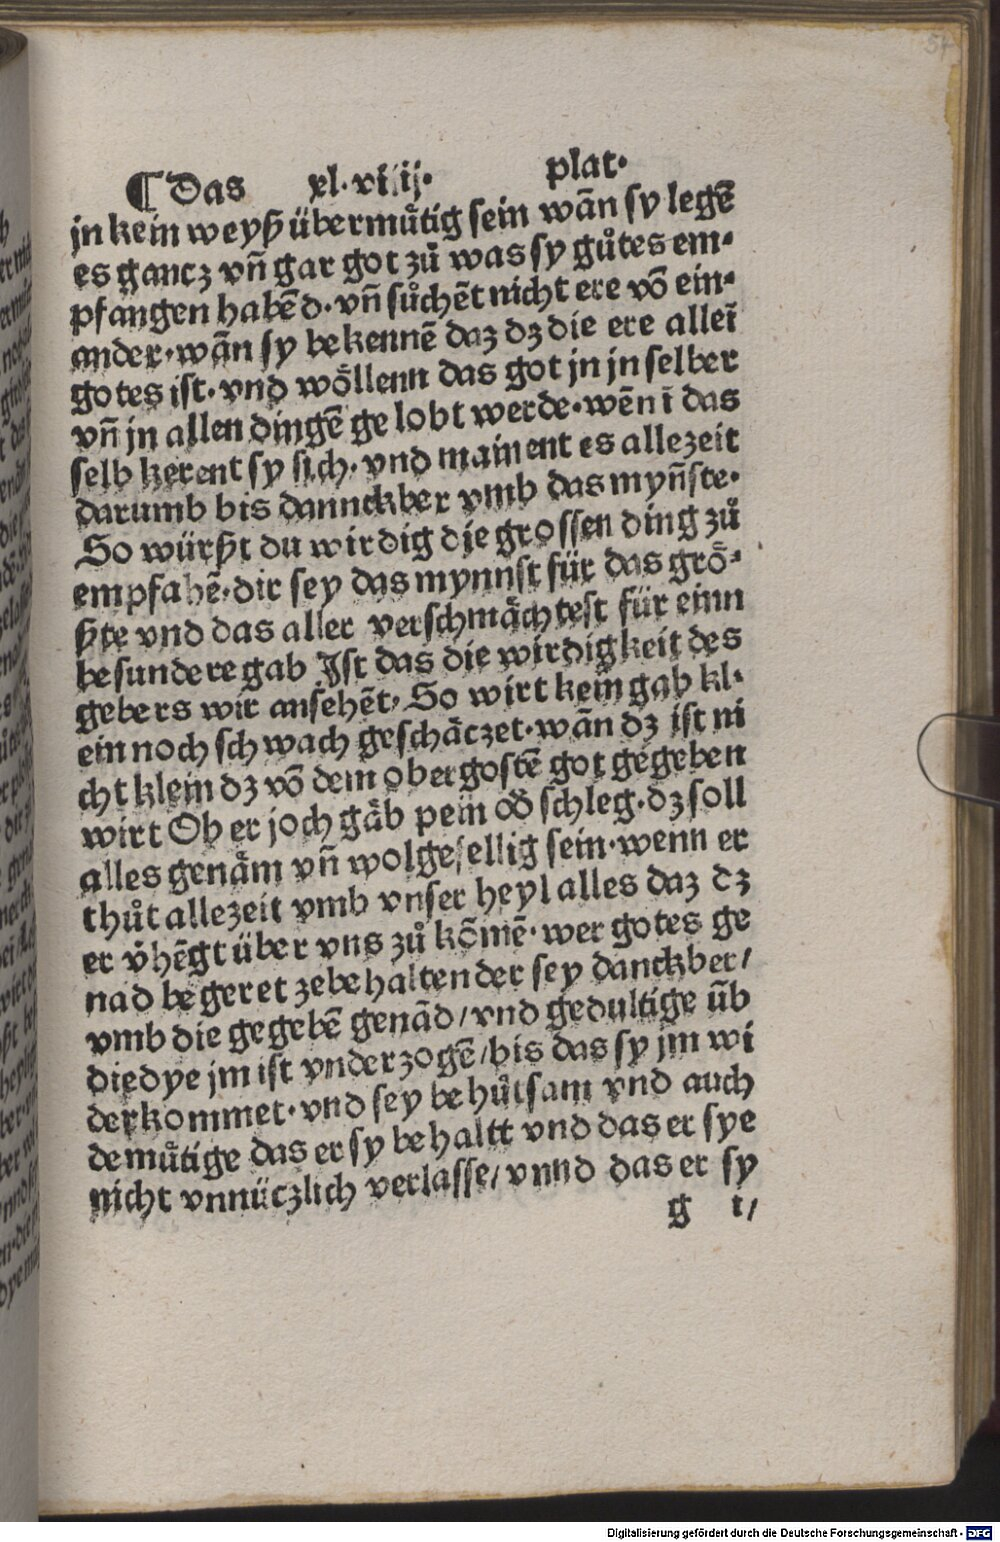 54
¶ Das xl·viiij· plat·
jn kein weyß übermuͤtig sein wañ sy legē
es gancz vñ gar got zů was sy gůtes em⸗
pfangen habēd· vñ sůchēt nicht ere vō ein⸗
ander· wañ sy bekennē daz dz die ere alleī
gotes ist· vnd woͤllenn das got jn jn selber
vñ jn allen dingē gelobt werde· wēn ī das
selb kerent sy sich· vnd mainent es allezeit
darumb bis dannckber vmb das myñste·
So würßt du wirdig die grossen ding zů
empfahē· dir sey das mynnst für das groͤ⸗
ßte vnd das aller verschmaͤchtest für einn
besundere gab Ist das die wirdigkeit des
gebers wir ansehēt/ So wirt kein gab kl⸗
ein noch schwach geschaͤczet· wañ dz ist ni
cht klein dz vō dem obergostē got gegeben
wirt Ob er joch gaͤb pein oď schleg· dz soll
alles genaͤm vñ wolgesellig sein· wenn er
thůt allezeit vmb vnser heyl alles daz dz
er v̄hēgt über vns zů kōmē· wer gotes ge
nad begeret zebehalten der sey danckber/
vmb die gegebē genād/ vnd gedultige ūb
die dye jm ist vnderzogē/ bis das sy jm wi
derkommet· vnd sey behůtsam vnd auch
demuͤtige das er sy behaltt vnd das er sye
nicht vnnüczlich verlasse/ vnnd das er sy
g i/
Digitalisierung gefördert durch die Deutsche Forschungsgemeinschaft - DFG